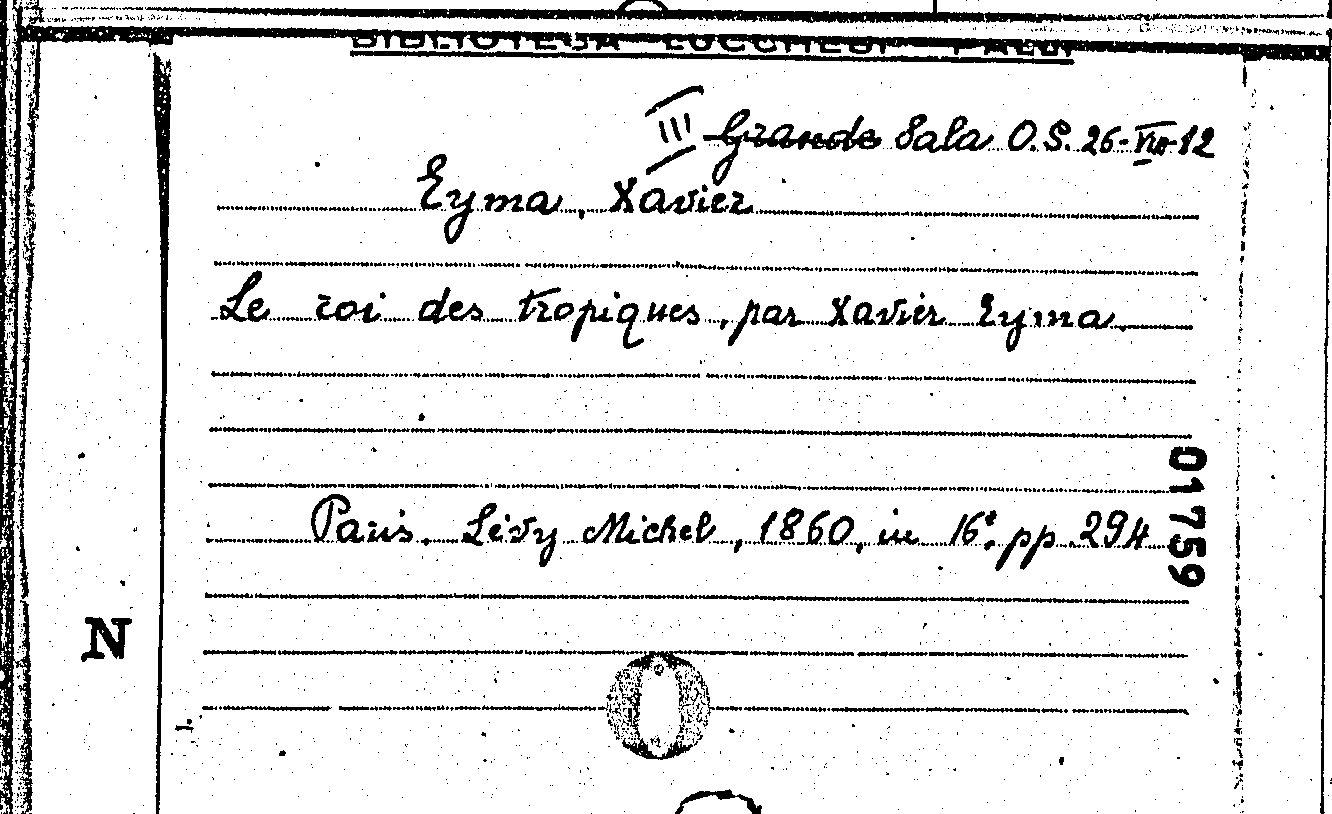 BIBLIOTECA LUCCHESI - PALLI
III Grande Sala O.S. 26-VII-12
Eyma, Xavier
Le roi des tropiques, par Xavier Eyma.
Paris. Lévy Michel, 1860, in 16°. pp. 294
01759
N